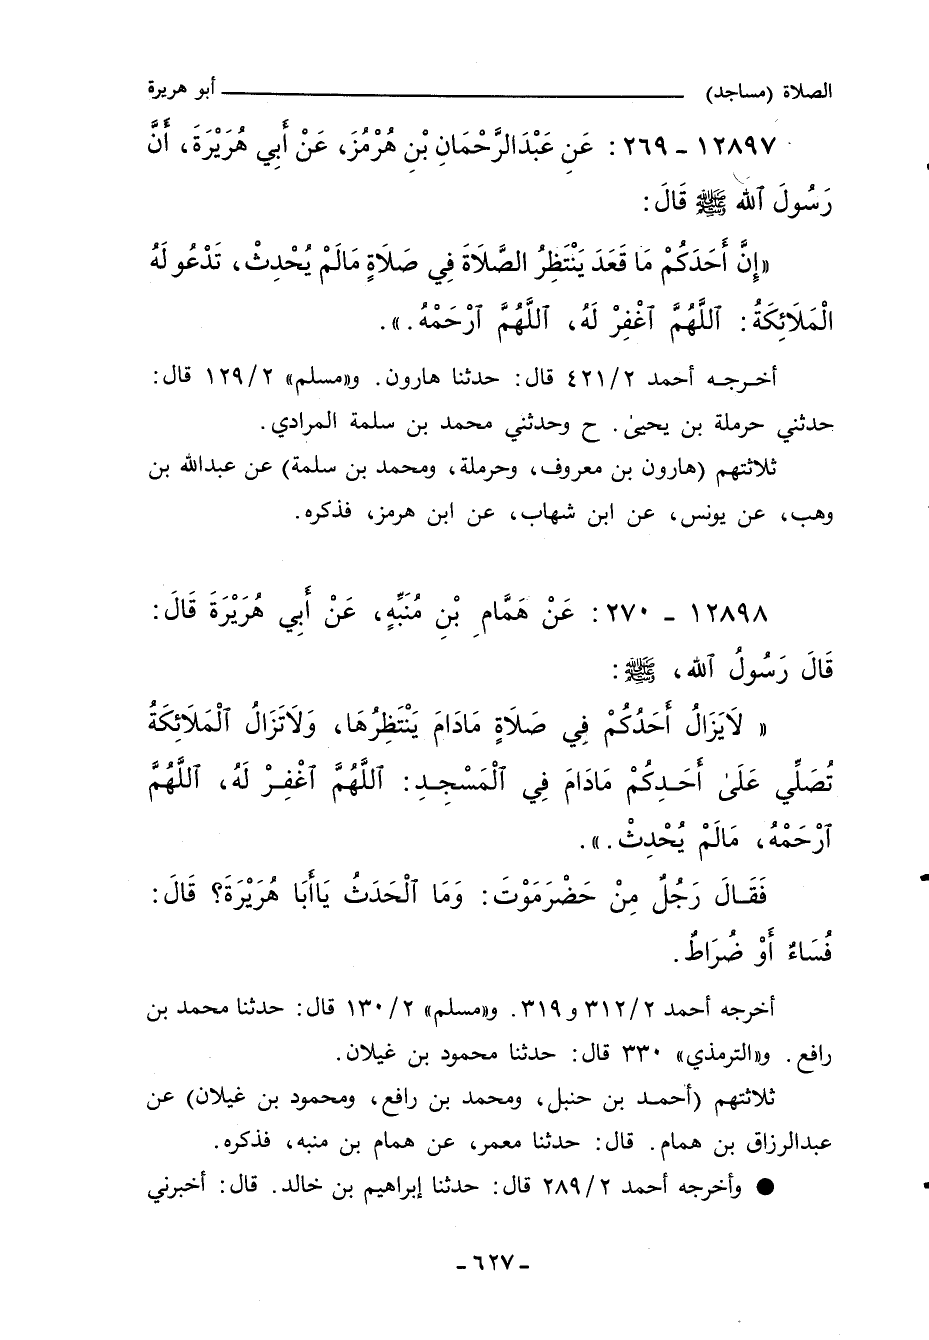 الصلاة (مساجد) ــــــــــــ أبو هريرة
١٢٨٩٧ ـ ٢٦٩ : عَنِ عَبْدَالرَّحْمَانِ بْنِ هُرْمُزَ، عَنْ أَبِي هُرَيْرَةَ، أَنَّ
رَسُولَ ٱلله ﷺ قَالَ:
«إِنَّ أَحَدَكُمْ مَا قَعَدَ يَنْتَظِرُ الصَّلَاةَ فِي صَلَاةٍ مَالَمْ يُحْدِثْ، تَدْعُو لَهُ
الْمَلَائِكَةُ: ٱللَّهُمَّ ٱغْفِرْ لَهُ، ٱللَّهُمَّ ٱرْحَمْهُ.».
أخرجه أحمد ٤٢١/٢ قال: حدثنا هارون. و«مسلم» ١٢٩/٢ قال:
حدثني حرملة بن يحيىٰ. ح وحدثني محمد بن سلمة المرادي.
ثلاثتهم (هارون بن معروف، وحرملة، ومحمد بن سلمة) عن عبدالله بن
وهب، عن يونس، عن ابن شهاب، عن ابن هرمز، فذكره.
١٢٨٩٨ ـ ٢٧٠ : عَنْ هَمَّامِ بْنِ مُنَبِّهٍ، عَنْ أَبِي هُرَيْرَةَ قَالَ:
قَالَ رَسُولُ ٱلله، ﷺ :
« لَايَزَالُ أَحَدُكُمْ فِي صَلَاةٍ مَادَامَ يَنْتَظِرُهَا، وَلَاتَزَالُ ٱلْمَلَائِكَةُ
تُصَلِّي عَلَىٰ أَحَدِكُمْ مَادَامَ فِي ٱلْمَسْجِدِ: ٱللَّهُمَّ ٱغْفِرْ لَهُ، ٱللَّهُمَّ
ٱرْحَمْهُ، مَالَمْ يُحْدِثْ.».
فَقَالَ رَجُلٌ مِنْ حَضْرَمَوْتَ: وَمَا ٱلْحَدَثُ يَاأَبَا هُرَيْرَةَ؟ قَالَ:
فُسَاءٌ أَوْ ضُرَاطٌ.
أخرجه أحمد ٣١٢/٢ و ٣١٩. و«مسلم» ١٣٠/٢ قال: حدثنا محمد بن
رافع. و«الترمذي» ٣٣٠ قال: حدثنا محمود بن غيلان.
ثلاثتهم (أحمد بن حنبل، ومحمد بن رافع، ومحمود بن غيلان) عن
عبدالرزاق بن همام. قال: حدثنا معمر، عن همام بن منبه، فذكره.
● وأخرجه أحمد ٢٨٩/٢ قال: حدثنا إبراهيم بن خالد. قال: أخبرني
ـ ٦٢٧ ـ